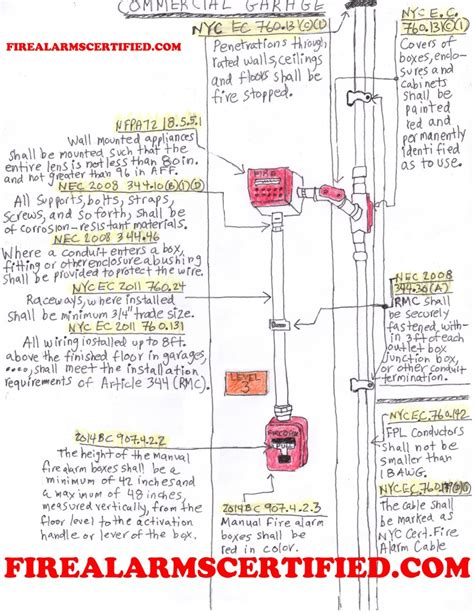 COMMERCIAL GARAGE
FIREALARMSCERTIFIED.COM
NYC EC 760.13(C)(1)
Penetrations through
rated walls, ceilings
and floors shall be
fire stopped.
NYC E.C.
760.13(C)(1)
Covers of
boxes, enclo-
sures and
cabinets
shall be
painted
red and
permanently
identified
as to use.
NFPA72 18.5.5.1
Wall mounted appliances
shall be mounted such that the
entire lens is not less than 80in.
and not greater than 96 in AFF.
NEC 2008 344.10(B)(1)(D)
All Supports, bolts, straps,
Screws, and so forth, shall be
of corrosion-resistant materials.
NEC 2008 344.46
Where a conduit enters a box,
fitting or other enclosure a bushing
shall be provided to protect the wire.
NYC EC 2011 760.24
Raceways, where installed
shall be minimum 3/4" trade size.
NYC EC 2011 760.131
All wiring installed up to 8ft.
above the finished floor in garages,
.... shall meet the installation
requirements of Article 344 (RMC).
FIRE
NEC 2008
344.30(A)
RMC shall
be securely
fastened, with-
in 3ft of each
outlet box
junction box,
or other conduit
termination.
LEVEL
3
PULL
2014 BC 907.4.2.2
The height of the manual
fire alarm boxes shall be a
minimum of 42 inches and
a maximum of 48 inches,
measured vertically, from the
floor level to the activation
handle or lever of the box.
2014 BC 907.4.2.3
Manual Fire alarm
boxes shall be
red in color.
NYC EC 760.142
FPL Conductors
shall not be
smaller than
18AWG.
NYC EC 760.179
The cable shall
be marked as
NYC Cert. Fire
Alarm Cable
FIREALARMSCERTIFIED.COM